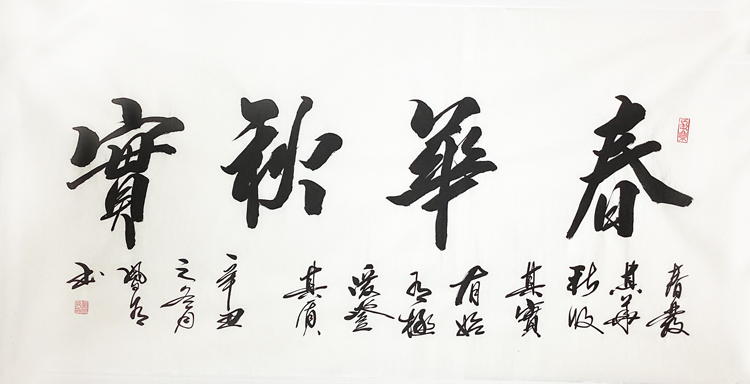 春華秋實
春發
其華
秋收
其實
有始
有極
爰登
其質
辛丑
之冬月
书